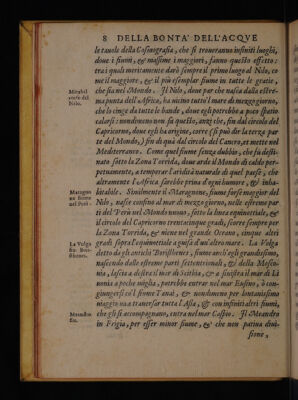 8 DELLA BONTA' DELL'ACQVE
le tauole della Cosmografia, che si troueranno infiniti luoghi,
doue i fiumi, & massime i maggiori, fanno questo effetto:
tra i quali meritamente darò sempre il primo luogo al Nilo, co
me il maggiore, & il più esemplar fiume in tutte le gratie,
che sia nel Mondo. Il Nilo, doue per che nasca dalla estre-
ma punta dell'Africa, ha uicino tutto l'mare di mezzogiorno,
che lo cinge da tutte le bande, doue egli potrebbe a poco spatio
calarsi: nondimeno non fa questo, anzi che, fin dal circolo del
Capricorno, doue egli ha origine, corre (si può dir la terza par
te del Mondo,) fin di quà dal circolo del Cancro, et mette nel
Mediterraneo. Come quel fiume senza dubbio, che fu desti-
nato sotto la Zona Torrida, doue arde il Mondo di caldo per-
petuamente, a temperar l'aridità naturale di quel paese; che
altramente l'Africa sarebbe priua d'ogni humore, & inha-
bitabile. Similmente il Maragnone, fiume forse maggior del
Nilo, nasce confino al mar di mezzo giorno, nelle estreme par
ti del Perù nel Mondo nuouo, sotto la linea equinottiale, &
il circolo del Capricorno trentacinque gradi, scorre sempre per
la Zona Torrida, & uiene nel grande Oceano, cinque altri
gradi sopra l'equinottiale a guisa d'un'altro mare. La Volga
detto da gli antichi Boristhenes, fiume anch'egli grandissimo,
nascendo dalle estreme parti settentrionali, & della Mosco-
uia, lascia a destra il mar di Scithia, & a sinistra il mar di Li
uonia a poche miglia, potrebbe entrar nel mar Eusino, ò con-
giungersi co'l fiume Tanai, & nondimeno per lontanissimo
uiaggio ua a trauersar tutta l'Asia, & con infiniti altri fiumi,
che gli si accompagnano, entra nel mar Caspio. Il Meandro
in Frigia, per esser minor fiume, & che non patiua diui-
sione,
Mirabil
corso del
Nilo.
Maragno
ne fiume
nel Perù.
La Volga
fiu. Bori-
sthenes.
Meandro
fiu.